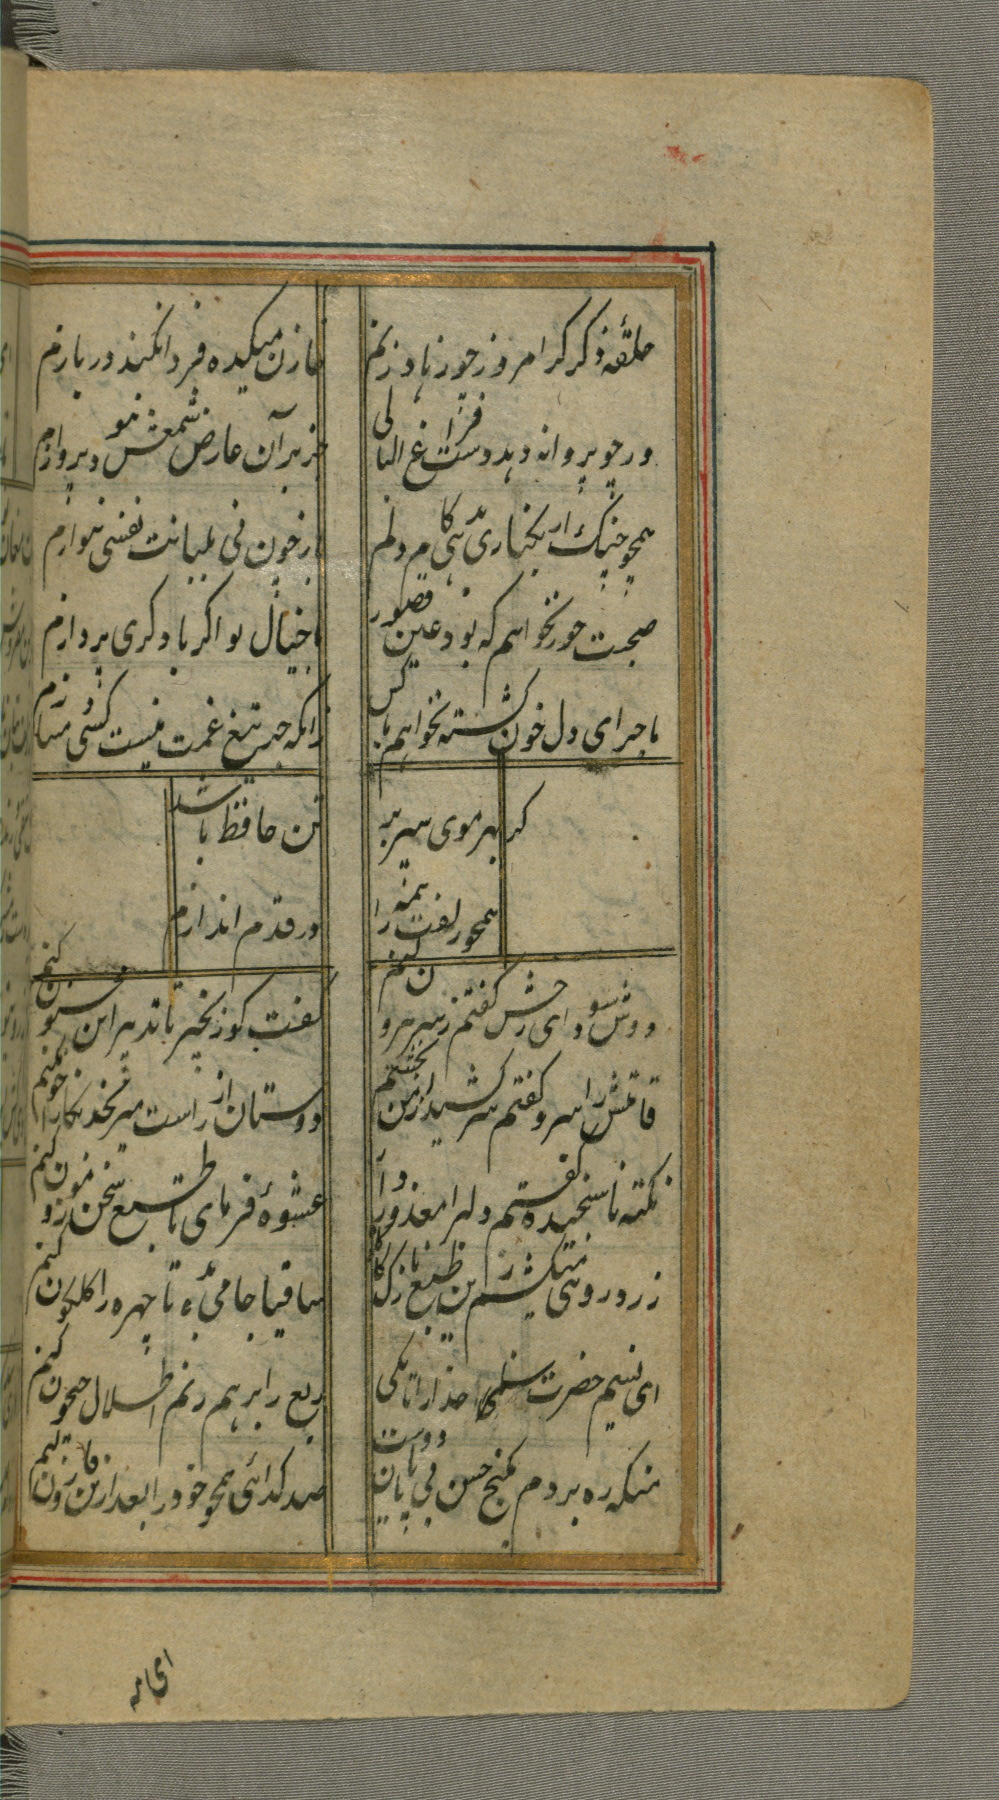 حلقه ذکر کر امروز چو زهاد زنم
خازن میکده فردا نکند در بازم
ور چو پروانه دهد دست فراغ البالی
جز بر آن عارض شمعش نبو د پروازم
همچو چنک ار بکناری ندهی کام دلم
از خون نی لبانت نفسی بنوازم
صحبت حور نخواهم که بود عین قصور
با خیال تو اگر با دگری پردازم
ماجرای دل خون گشته نخواهم با کس
زانکه جس تیغ غمت نیست کسی دمسازم
گر بهر موی سر بر
تن حافظ باشد
همچو زلفت همه را
در قدم اندازم
دوش سودای رخش گفتم ز سر بیرون کنم
گفت کو زنجیر تا تدبیر این مجنون کنم
قامتش را سرو گفتم سر کشید از من بخشم
دوستان از راست میرنجد نگارم چون کنم
نکته ناسنجیده گفتم دلبرا معذور دار
عشوهٔ فرمای تا طبع سخن موزون کنم
زرد روئی میکشم زین طبع نازک
ساقیا جامی بده تا چهره را گلگون کنم
ای نسیم حضرت سلمی خدا را تا بکی
ربع را بر هم زنم اطلال جیحون کنم
منکه ره بردم بگنج حسن بی پایان دوست
صد گدائی همچو خود را بعد ازین قارون کنم
ای مه